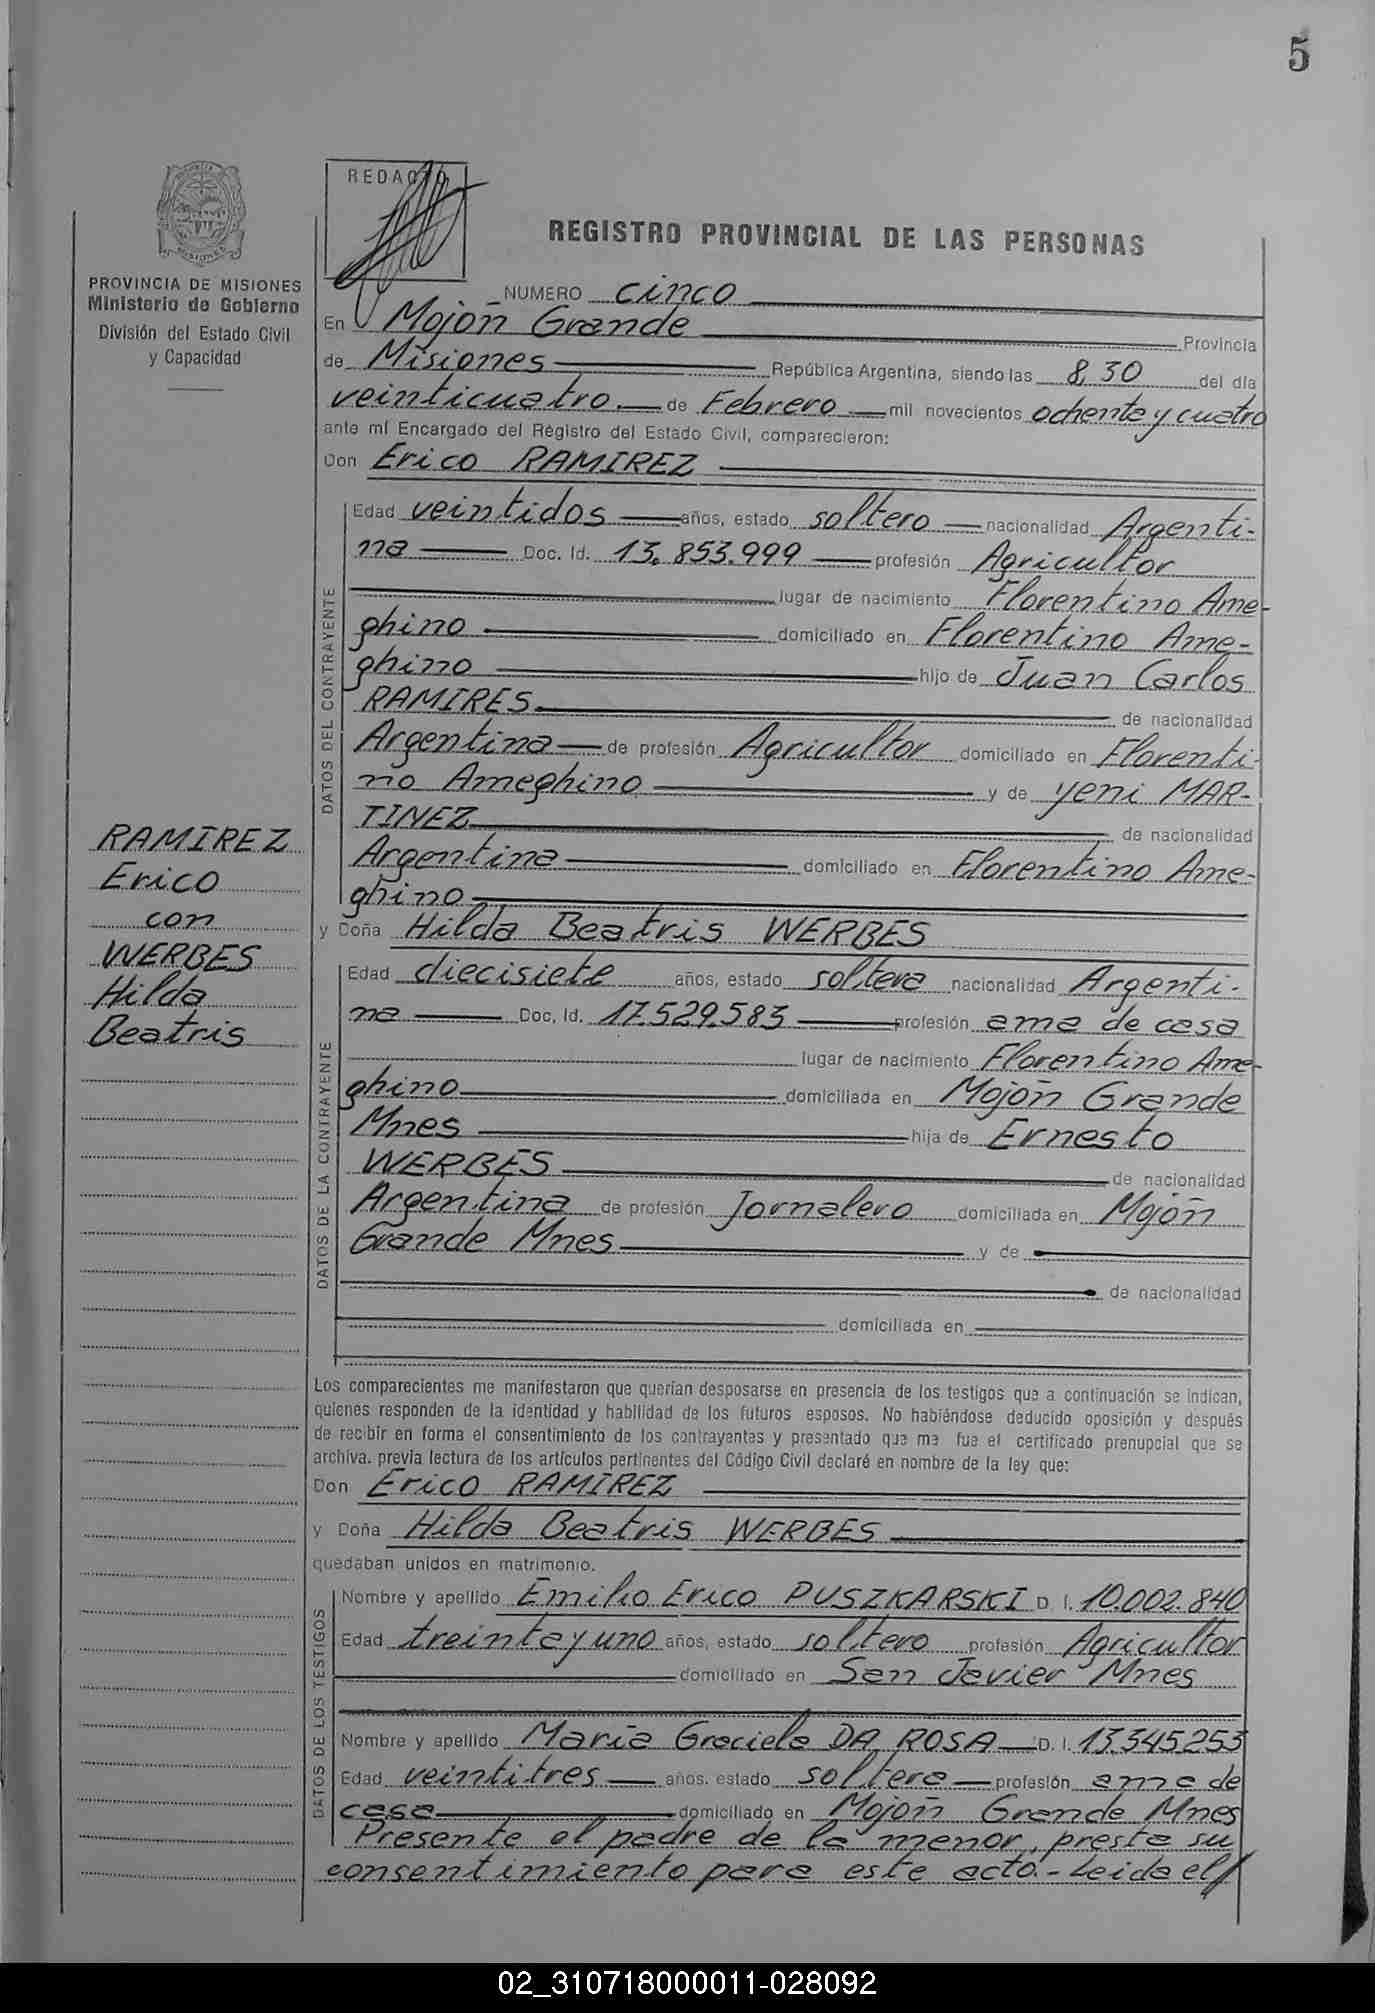 5
REDACTO
REGISTRO PROVINCIAL DE LAS PERSONAS
PROVINCIA DE MISIONES
Ministerio de Gobierno
División del Estado Civil
y Capacidad
NUMERO cinco
En Mojón Grande Provincia
de Misiones República Argentina, siendo las 8,30 del día
veinticuatro.- de Febrero mil novecientos ochenta y cuatro
ante mí Encargado del Registro del Estado Civil, comparecieron:
Don Erico RAMIREZ
DATOS DEL CONTRAYENTE
Edad veintidos años, estado soltero nacionalidad Argenti-
na Doc. Id. 13.853.999 profesión Agricultor
lugar de nacimiento Florentino Ame-
ghino domiciliado en Florentino Ame-
ghino hijo de Juan Carlos
RAMIRES de nacionalidad
Argentina de profesión Agricultor domiciliado en Florenti-
no Ameghino y de yeni MAR-
TINEZ de nacionalidad
Argentina domiciliado en Florentino Ame-
ghino
RAMIREZ
Erico
con
WERBES
Hilda
Beatris
y Doña Hilda Beatris WERBES
DATOS DE LA CONTRAYENTE
Edad diecisiete años, estado soltera nacionalidad Argenti-
na Doc. Id. 17.529.583 profesión ama de casa
lugar de nacimiento Florentino Ame-
ghino domiciliada en Mojón Grande
Mnes hija de Ernesto
WERBES de nacionalidad
Argentina de profesión Jornalero domiciliada en Mojón
Grande Mnes y de
de nacionalidad
domiciliada en
Los comparecientes me manifestaron que querían desposarse en presencia de los testigos que a continuación se indican,
quienes responden de la identidad y habilidad de los futuros esposos. No habiéndose deducido oposición y después
de recibir en forma el consentimiento de los contrayentes y presentado que me fue el certificado prenupcial que se
archiva. previa lectura de los artículos pertinentes del Código Civil declaré en nombre de la ley que:
Don Erico RAMIREZ
y Doña Hilda Beatris WERBES
quedaban unidos en matrimonio.
DATOS DE LOS TESTIGOS
Nombre y apellido Emilio Erico PUSZKARSKI D. I. 10.002.840
Edad treinta y uno años, estado soltero profesión Agricultor
domiciliado en San Javier Mnes
Nombre y apellido María Graciela DA ROSA D. I. 13.345.253
Edad veintitres años. estado soltera profesión ama de
casa domiciliado en Mojón Grande Mnes
Presente el padre de la menor, presta su
consentimiento para este acto.- Leida el/
02_310718000011-028092